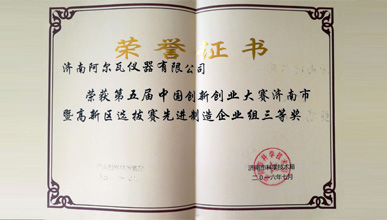 荣誉证书
济南阿尔瓦仪器有限公司
荣获第五届中国创新创业大赛济南市
暨高新区选拔赛先进制造企业组三等奖
济南市科学技术局
二〇一六年七月